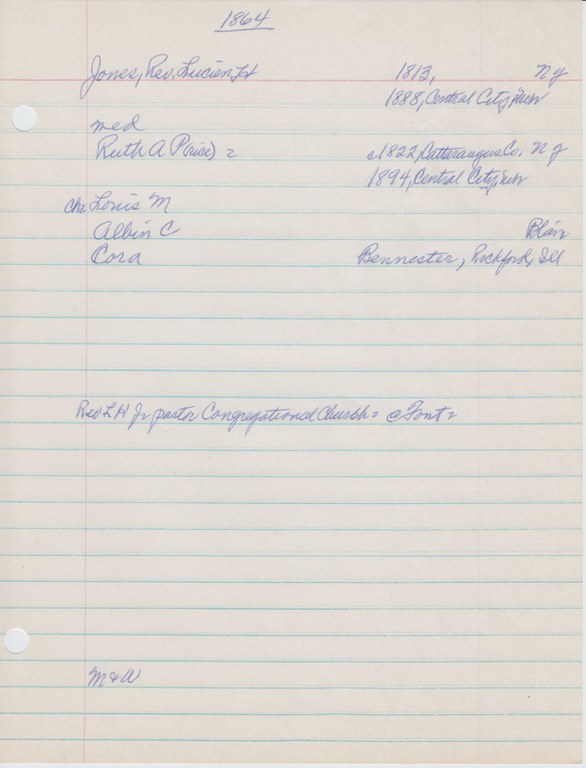 1864
Jones, Rev. Lucien H 1813, NY
1888, Central City, Neb
med
Ruth A (Price) = c1822, Cattaraugus Co. NY
1894, Central City, Neb
ch Louis M
Albin C Blair
Cora Bennester, Rockford, Ill
Rev L H Jr pastor Congregational Church = @ Font =
M & W